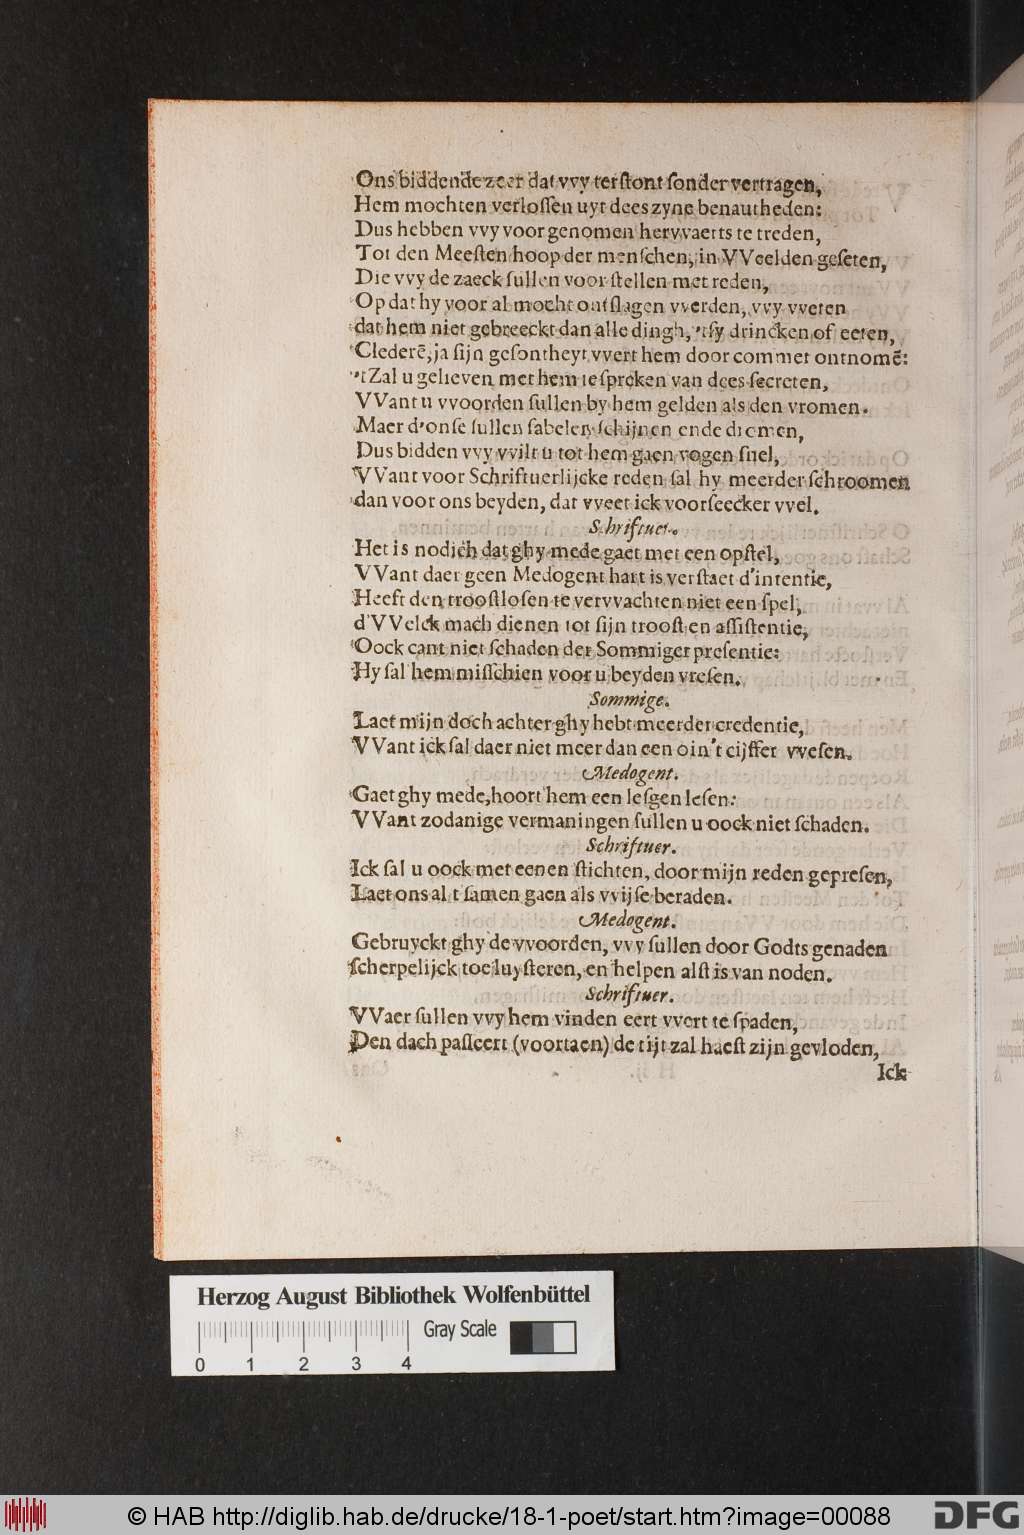 Ons biddende zeer dat vvy terſtont ſonder vertragen,
Hem mochten verloſſen uyt dees zyne benautheden:
Dus hebben vvy voor genomen hervvaerts te treden,
Tot den Meeſten hoop der menſchen, in VVeelden geſeten,
Die vvy de zaeck ſullen voor ſtellen met reden,
Op dat hy voor al mocht ontſlagen vverden, vvy vveten
dat hem niet gebreeckt dan alle dingh, 'tſy drincken of eeten,
Clederē, ja ſijn geſontheyt vvert hem door commer ontnomē:
'tZal u gelieven met hem te ſpreken van dees ſecreten,
VVant u vvoorden ſullen by hem gelden als den vromen.
Maer d'onſe ſullen fabelen ſchijnen ende dromen,
Dus bidden vvy vvilt u tot hem gaen vogen ſnel,
VVant voor Schriftuerlijcke reden ſal hy meerder ſchroomen
dan voor ons beyden, dat vveet ick voorſeecker vvel.
Schriftuer.
Het is nodich dat ghy mede gaet met een opſtel,
VVant daer geen Medogent hart is verſtaet d'intentie,
Heeft den trooſtloſen te vervvachten niet een ſpel,
d'VVelck mach dienen tot ſijn trooſt en aſſiſtentie,
Oock cant niet ſchaden der Sommiger preſentie:
Hy ſal hem miſſchien voor u beyden vreſen.
Sommige.
Laet mijn doch achter ghy hebt meerder credentie,
VVant ick ſal daer niet meer dan een o in 't cijffer vveſen.
Medogent.
Gaet ghy mede, hoort hem een leſgen leſen:
VVant zodanige vermaningen ſullen u oock niet ſchaden.
Schriftuer.
Ick ſal u oock met eenen ſtichten, door mijn reden gepreſen,
Laet ons al t ſamen gaen als vvijſe beraden.
Medogent.
Gebruyckt ghy de vvoorden, vvy ſullen door Godts genaden
ſcherpelijck toeluyſteren, en helpen alſt is van noden.
Schriftuer.
VVaer ſullen vvy hem vinden eert vvert te ſpaden,
Den dach paſſeert (voortaen) de tijt zal haeſt zijn gevloden,
Ick
Herzog August Bibliothek Wolfenbüttel
Gray Scale
0 1 2 3 4
© HAB http://diglib.hab.de/drucke/18-1-poet/start.htm?image=00088
DFG